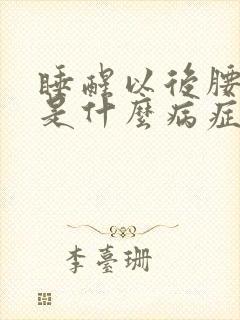 睡醒以後腰
是什麼病症
李臺珊